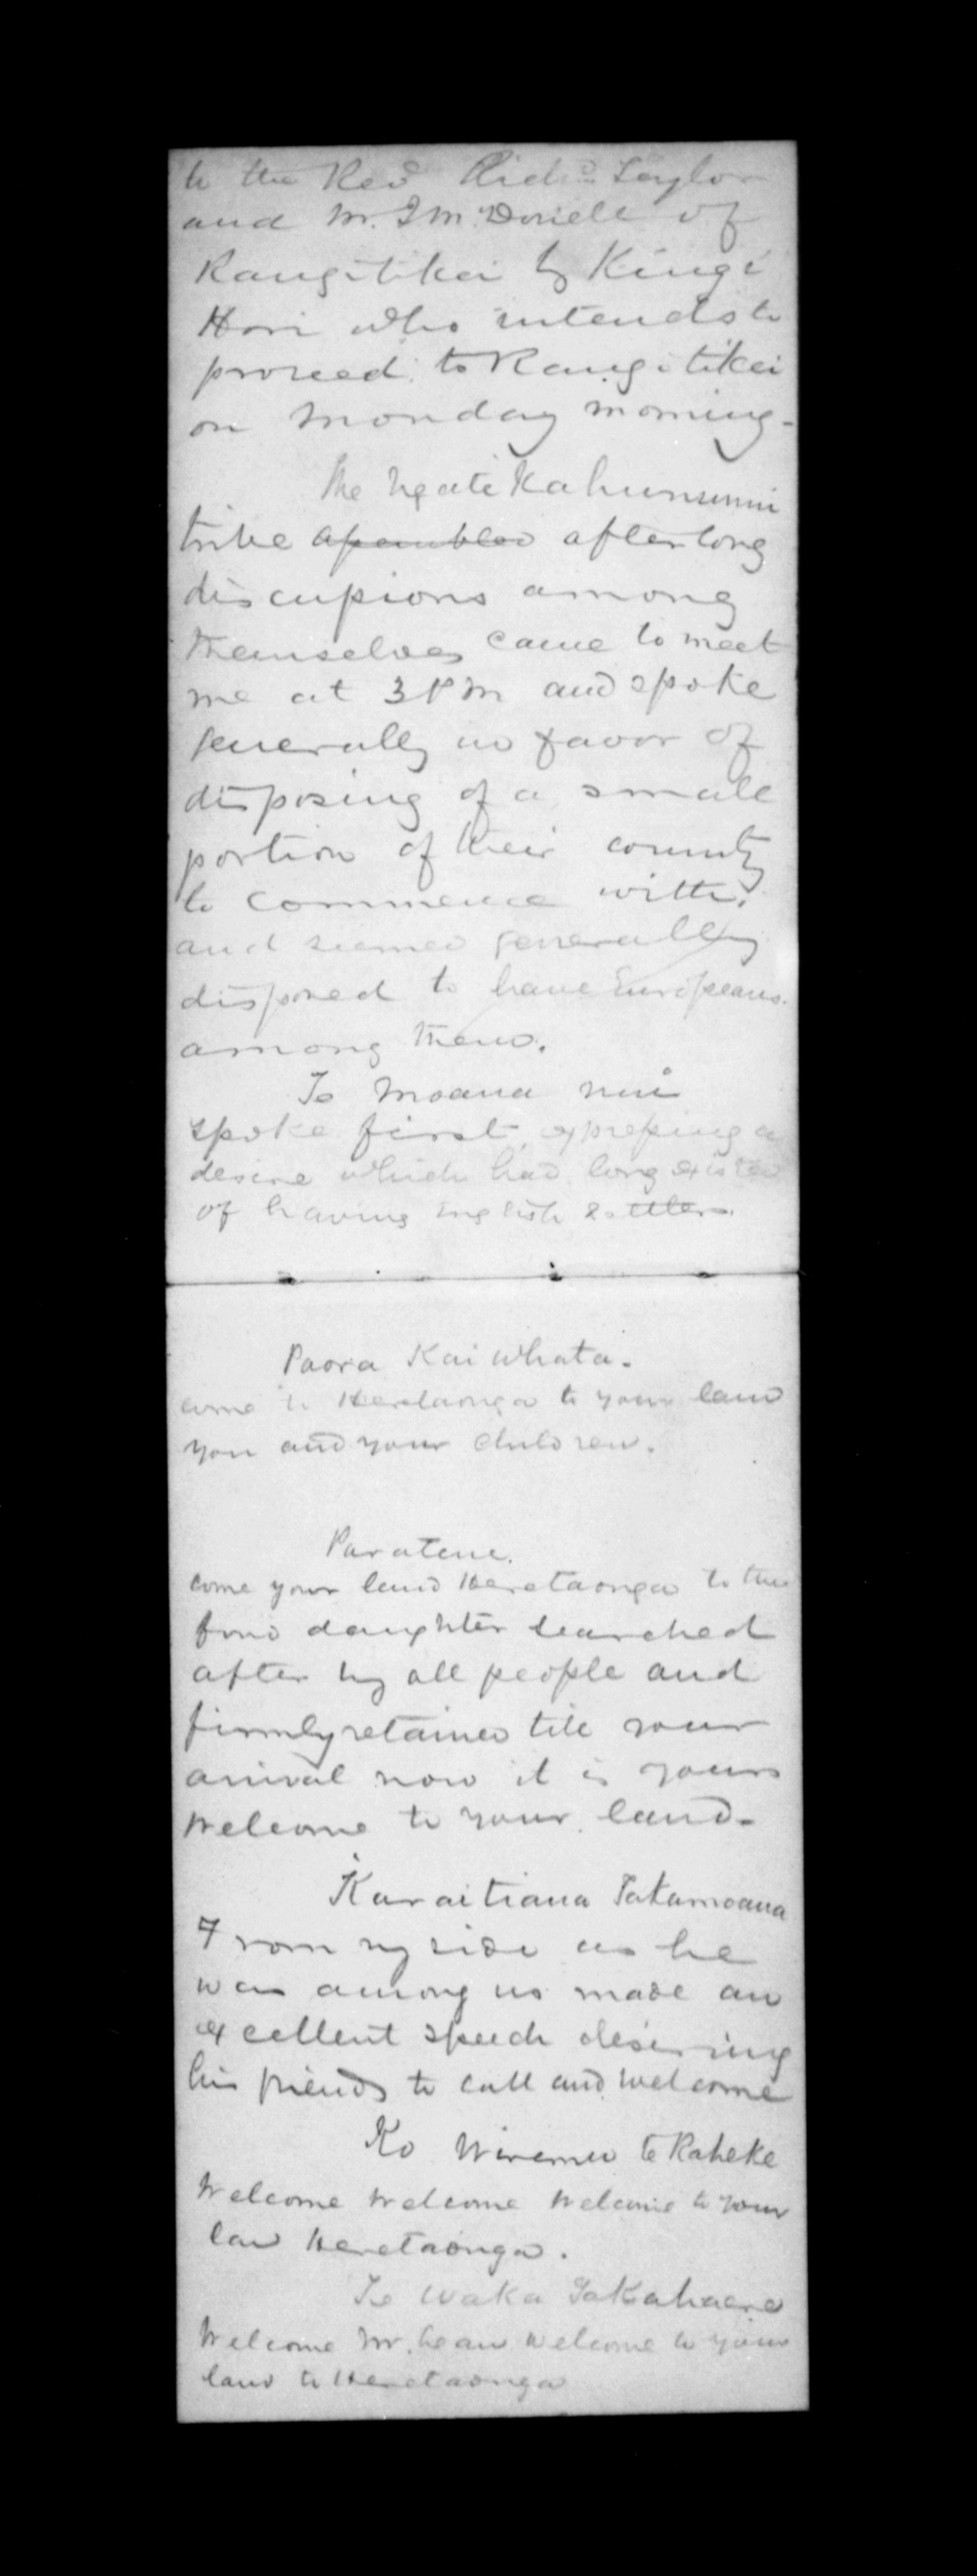 to the Revd Richd Taylor
and Mr. J McDonell of
Rangitikei by Kingi
Hori who intends to
proceed to Rangitikei
on Monday morning -
The Ngatikahununu
tribe assembled after long
discussions among
themselves came to meet
me at 3 PM and spoke
generally in favor of
disposing of a small
portion of their country
to commence with.
and seemed generally
disposed to have Europeans
among them.
Te Moana nui
spoke first, expressing a
desire which had long existed
of having English settlers.
Paora Kai whata.
come to Heretaonga to your land
you and your children.
Paratene.
come your land Heretaonga to the
fond daughter searched
after by all people and
firmly retained till your
arrival now it is yours
Welcome to your land -
Karaitiana Takamoana
From my side as he
was among us made an
excellent speech desiring
his friends to call and welcome
Ko Wiremu te Raheke
Welcome Welcome Welcome to your
lan Heretaonga.
Te Waka Takahaere
Welcome Mr. Lean Welcome to your
land to Heretaonga